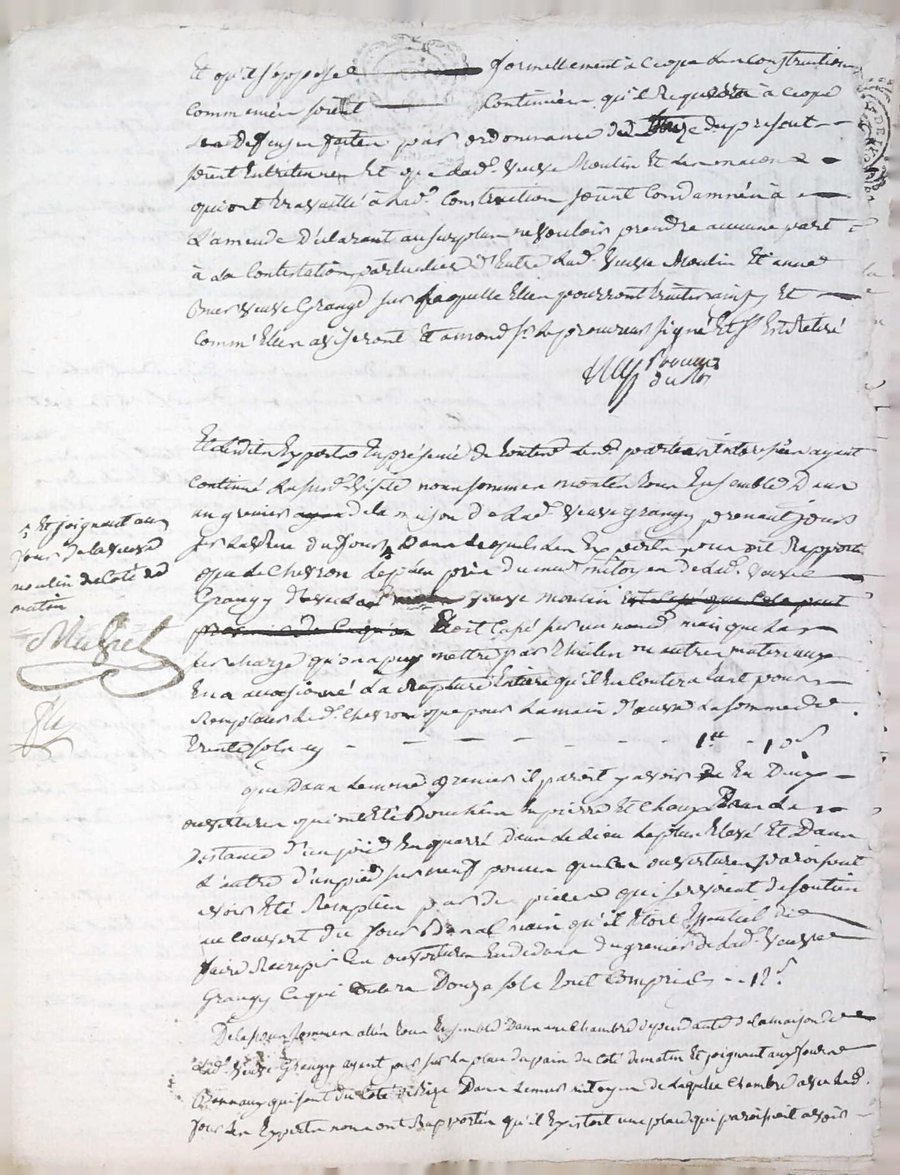 Et qu'il s'oppose formellement à ce que la construction
commencée soit continuée, qu'il requiert à ce que
les deffenses faites par ordonnance du du présent
soient Entretenues Et que lad.e veuve Moulin Et les maçons
qui ont travaillé à lad.e Construction soient Condamnés à
L'amende Déclarant au surplus ne vouloir prendre aucune part
à la Contestation particulière d'Entre lad.e veuve Moulin Et anne
veuve Grangy sur laquelle Elles pourront Et
comm'Elles aviseront Et a mond.s le procureur signé Et s'Est Retiré
procureur
du Roi
Et lesdits Experts En présence de toutes les parties intéressées ayant
continué la visite nous sommes montés tous Ensemble Dans
un grenier de la maison de lad.e veuve Grangy prenant jour
sur du four Dans lequel les Experts nous ont Rapporté
que le Chevron le plus près du mur mitoyen de lad.e veuve
Grangy veuve moulin
Etoit Cassé sur un nœud mais que la
surcharge qu'on a pu mettre par thuiles ou autres materiaux
En a occasionné la Rupture Entière qu'il En Coutera tant pour
Remplacer led.t Chevron que pour la main d'œuvre La somme de
trente sols cy - - - - - - 1 # 10 s
que Dans le même grenier il paroit y avoir Eu Deux
ouvertures qui ont Eté Bouchées En pierre Et Chaux Dans la
Distance d'un pied En quarré Dans le lieu le plus Elevé Et Dans
L'autre d'un pied sur neuf pouces que les ouvertures paroissent
avoir Eté Remplies par des pièces qui servoient de soutien
au couvert du four Banal mais qu'il Etoit Essentiel de
faire Recrepir les ouvertures En dedans du grenier de lad.e veuve
Grangy Ce qui Coutera Douze sols tout Compris - - 12 s
De là nous sommes allés tous Ensemble Dans une Chambre dependante de la maison de
lad.e veuve Grangy ayant jour sur la place du pain du Coté de matin Et joignant aux fours
Bannaux qui sont du Coté de Bize Dans le mur mitoyen de laquelle Chambre avec led.
four les Experts nous ont Rapporté qu'il Existoit une place qui paroissoit avoir
Et joignant au
four de la veuve
moulin du Coté de
matin